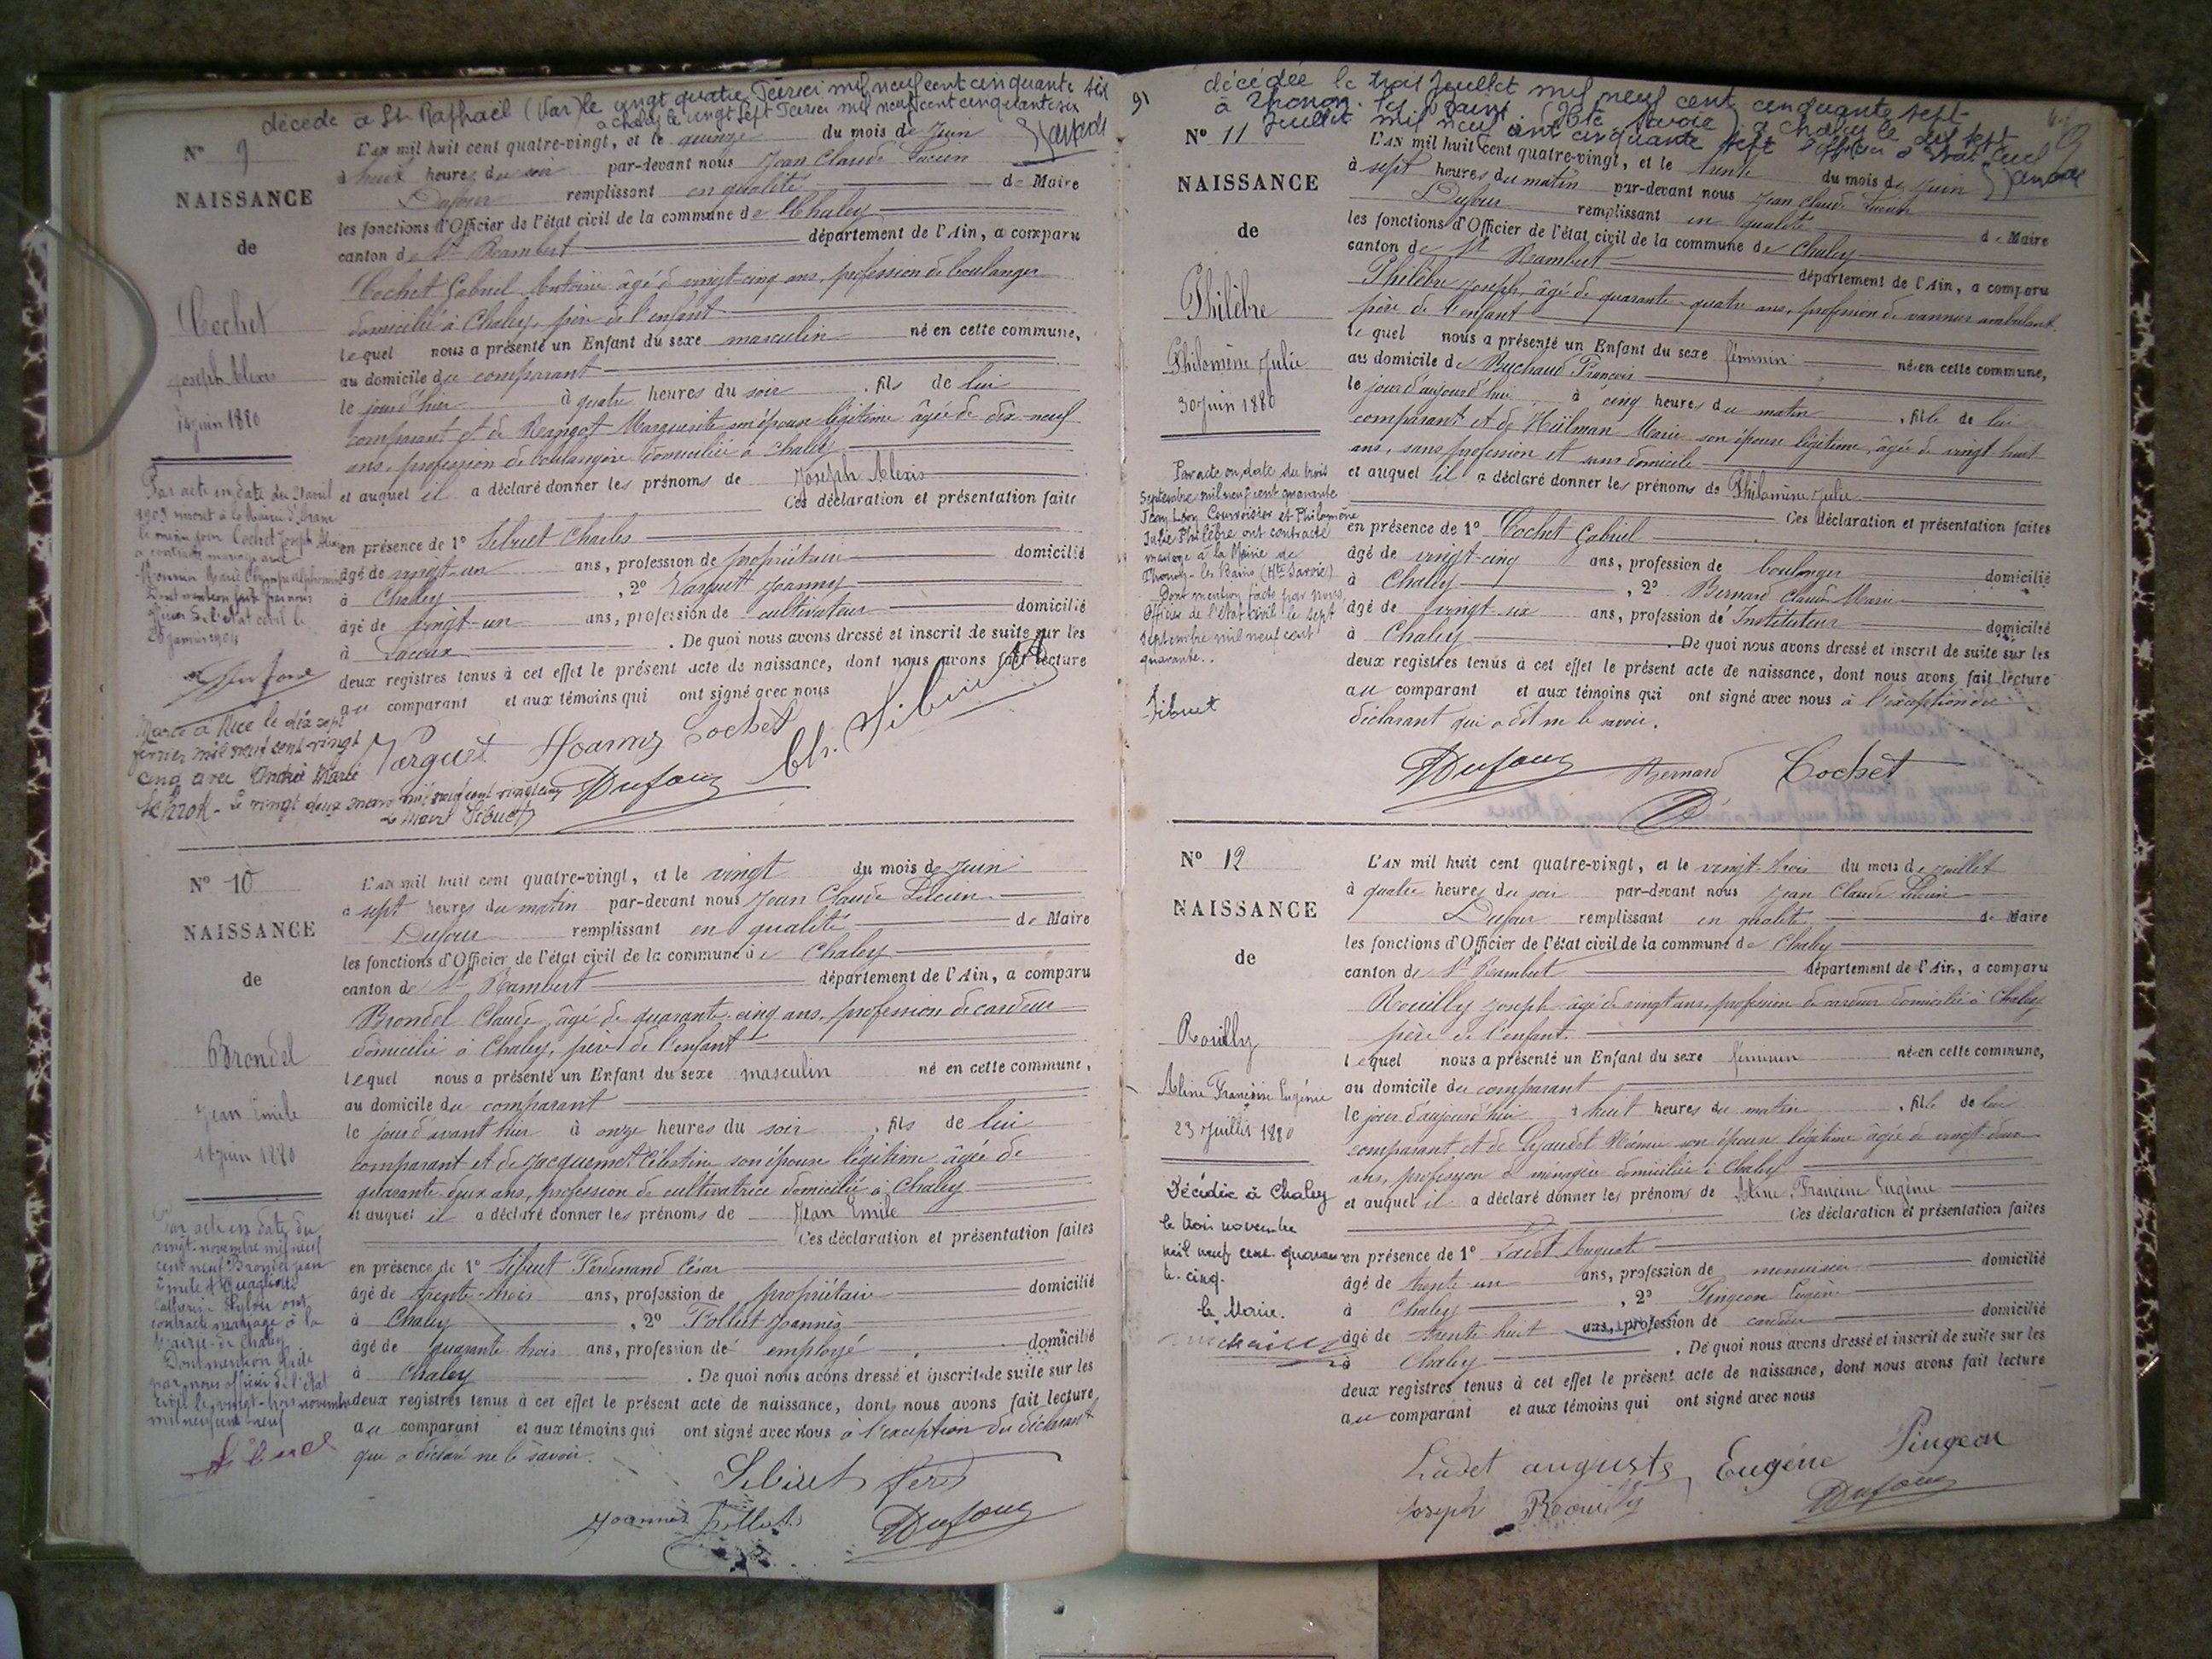 décédé à St Raphaël (Var) le vingt quatre Février mil neuf cent cinquante six
à Chaley le vingt sept Février mil neuf cent cinquante six
N° 9
NAISSANCE
de
Cochet
Joseph Alexis
14 juin 1880
Par acte en date du 21 avril
1903 inscrit à la Mairie d'
le nommé Cochet Joseph Alexis
a contracté mariage avec
Marie Olympe Alphonsine
Dont mention faite par nous
officier de l'état civil le
28 janvier 1904
Marié à Nice le dix sept
février mil neuf cent vingt
cinq avec Andrée Marie
Le vingt deux mars mil neuf cent vingt cinq
Le Maire Sibuet
L'AN mil huit cent quatre-vingt, et le quinze du mois de Juin
à huit heures du soir par-devant nous Jean Claude Lucien
Dufour remplissant en qualité de Maire
les fonctions d'Officier de l'état civil de la commune de Chaley
canton de St Rambert département de l'Ain, a comparu
Cochet Gabriel Antoine âgé de vingt-cinq ans, profession de boulanger
domicilié à Chaley, père de l'enfant
lequel nous a présenté un Enfant du sexe masculin né en cette commune,
au domicile du comparant
le jour d'hier à quatre heures du soir , fils de lui
comparant et de Mangot Marguerite son épouse légitime âgée de dix-neuf
ans, profession de boulangère domiciliée à Chaley
et auquel il a déclaré donner les prénoms de Joseph Alexis
Ces déclaration et présentation faites
en présence de 1° Sibuet Charles
âgé de vingt-un ans, profession de propriétaire domicilié
à Chaley , 2° Varguet Joanny
âgé de vingt-un ans, profession de cultivateur domicilié
à Lacoux . De quoi nous avons dressé et inscrit de suite sur les
deux registres tenus à cet effet le présent acte de naissance, dont nous avons fait lecture
au comparant et aux témoins qui ont signé avec nous
Varguet Joanny Cochet Ch. Sibuet
Dufour
N° 10
NAISSANCE
de
Brondel
Jean Emile
18 juin 1880
Par acte en date du
vingt novembre mil neuf
cent neuf Brondel Jean
Emile et
Catherine ont
contracté mariage à la
Mairie de Chaley
Dont mention faite
par nous officier de l'état
civil le vingt-trois novembre
mil neuf cent neuf
Sibuet
L'AN mil huit cent quatre-vingt, et le vingt du mois de Juin
à sept heures du matin par-devant nous Jean Claude Lucien
Dufour remplissant en qualité de Maire
les fonctions d'Officier de l'état civil de la commune de Chaley
canton de St Rambert département de l'Ain, a comparu
Brondel Claude, âgé de quarante-cinq ans, profession de cardeur
domicilié à Chaley, père de l'enfant
lequel nous a présenté un Enfant du sexe masculin né en cette commune,
au domicile du comparant
le jour d'avant hier à onze heures du soir , fils de lui
comparant et de Jacquemet Célestine son épouse légitime âgée de
quarante-deux ans, profession de cultivatrice domiciliée à Chaley
et auquel il a déclaré donner les prénoms de Jean Emile
Ces déclaration et présentation faites
en présence de 1° Sibuet Ferdinand César
âgé de trente-trois ans, profession de propriétaire domicilié
à Chaley , 2° Follet Joannès
âgé de quarante trois ans, profession de employé domicilié
à Chaley . De quoi nous avons dressé et inscrit de suite sur les
deux registres tenus à cet effet le présent acte de naissance, dont nous avons fait lecture
au comparant et aux témoins qui ont signé avec nous à l'exception du déclarant
qui a déclaré ne le savoir.
Sibuet Ferd
Joannès Follet Dufour
décédée le trois Juillet mil neuf cent cinquante sept
à Thonon-les-Bains (Hte Savoie) à Chaley le dix sept
Juillet mil neuf cent cinquante sept l'officier d'état civil
N° 11
NAISSANCE
de
Philèbre
Philomène Julie
30 Juin 1880
Par acte en date du trois
Septembre mil neuf cent quarante
Jean Léon Courvoisier et Philomène
Julie Philèbre ont contracté
mariage à la Mairie de
Thonon-les-Bains (Hte Savoie)
Dont mention faite par nous,
Officier de l'état civil le sept
Septembre mil neuf cent
quarante..
Sibuet
L'AN mil huit cent quatre-vingt, et le trente du mois de Juin
à sept heures du matin par-devant nous Jean Claude Lucien
Dufour remplissant en qualité de Maire
les fonctions d'Officier de l'état civil de la commune de Chaley
canton de St Rambert département de l'Ain, a comparu
Philèbre Joseph, âgé de quarante-quatre ans, profession de vannier ambulant,
père de l'enfant
lequel nous a présenté un Enfant du sexe féminin née en cette commune,
au domicile de Buchaud François
le jour d'aujourd'hui à cinq heures du matin , fille de lui
comparant et de Hülman Marie son épouse légitime, âgée de vingt huit
ans, sans profession et sans domicile
et auquel il a déclaré donner les prénoms de Philomène Julie
Ces déclaration et présentation faites
en présence de 1° Cochet Gabriel
âgé de vingt-cinq ans, profession de boulanger domicilié
à Chaley , 2° Bernard Claude Marie
âgé de vingt-six ans, profession de Instituteur domicilié
à Chaley . De quoi nous avons dressé et inscrit de suite sur les
deux registres tenus à cet effet le présent acte de naissance, dont nous avons fait lecture
au comparant et aux témoins qui ont signé avec nous à l'exception du
déclarant qui a dit ne le savoir.
Dufour Bernard Cochet
N° 12
NAISSANCE
de
Rouilly
Aline Francine Eugénie
23 Juillet 1880
Décédée à Chaley
le trois novembre
mil neuf cent quaran
te-cinq.
le Maire.
L'AN mil huit cent quatre-vingt, et le vingt-trois du mois de Juillet
à quatre heures du soir par-devant nous Jean Claude Lucien
Dufour remplissant en qualité de Maire
les fonctions d'Officier de l'état civil de la commune de Chaley
canton de St Rambert département de l'Ain, a comparu
Rouilly Joseph âgé de vingt ans, profession de cardeur domicilié à Chaley
père de l'enfant.
lequel nous a présenté un Enfant du sexe féminin née en cette commune,
au domicile du comparant
le jour d'aujourd'hui à huit heures du matin , fille de lui
comparant et de Noémie son épouse légitime âgée de vingt-deux
ans, profession de ménagère domiciliée à Chaley
et auquel il a déclaré donner les prénoms de Aline, Francine Eugénie
Ces déclaration et présentation faites
en présence de 1° Ladet Auguste
âgé de trente un ans, profession de menuisier domicilié
à Chaley , 2° Pingeon Eugène
âgé de trente huit ans, profession de cardeur domicilié
à Chaley . De quoi nous avons dressé et inscrit de suite sur les
deux registres tenus à cet effet le présent acte de naissance, dont nous avons fait lecture
au comparant et aux témoins qui ont signé avec nous
Ladet auguste, Eugène Pingeon
Joseph Rouilly Dufour